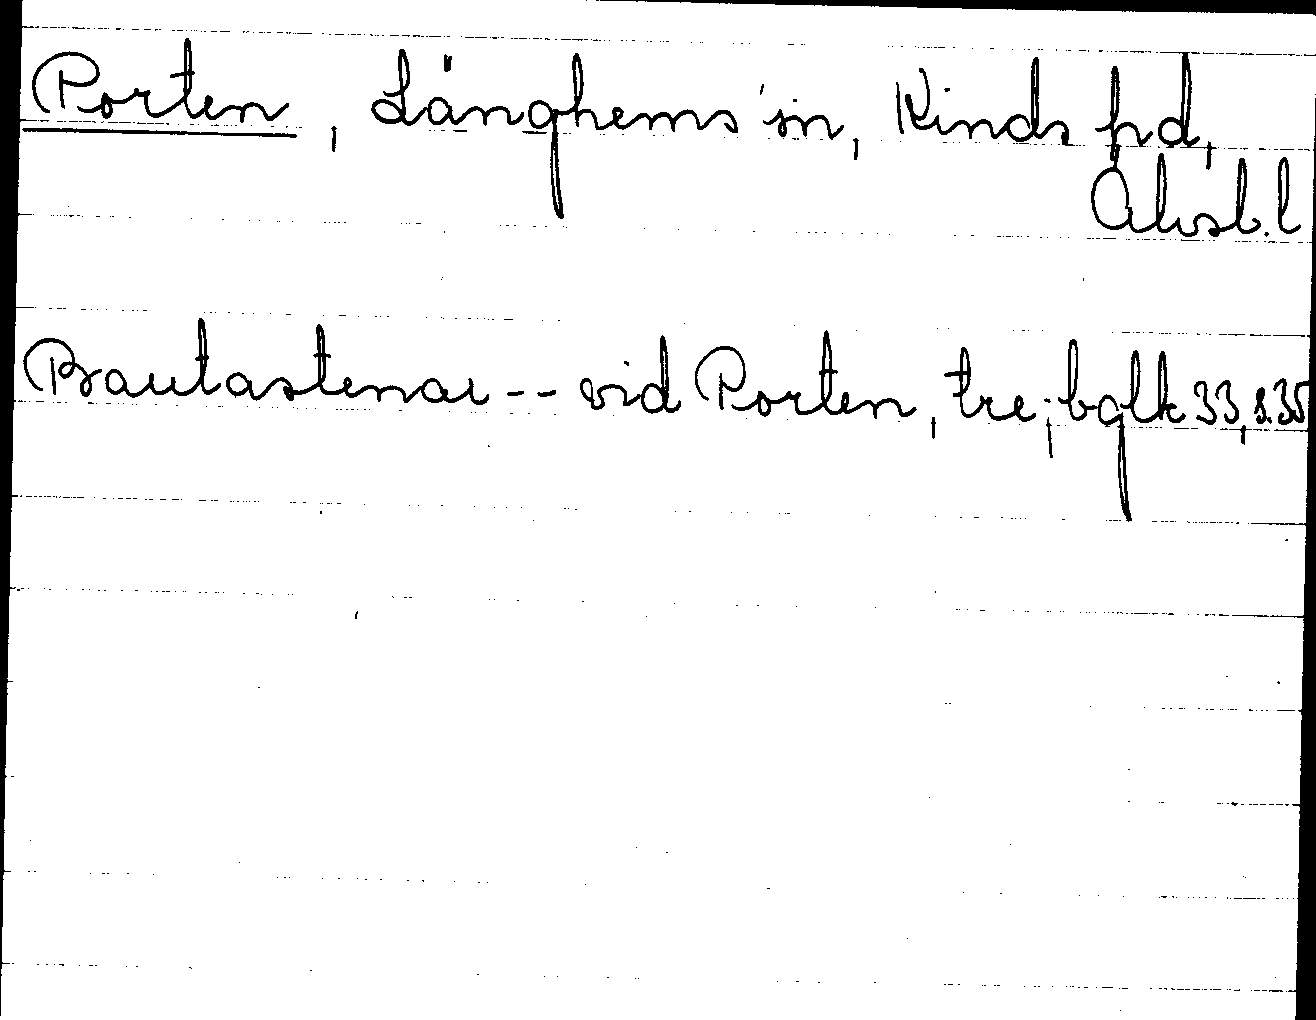 Porten, Länghems sn, Kinds hd,
Älvsb. l
Bautastenar -- vid Porten, tre; bglk 33, s. 35